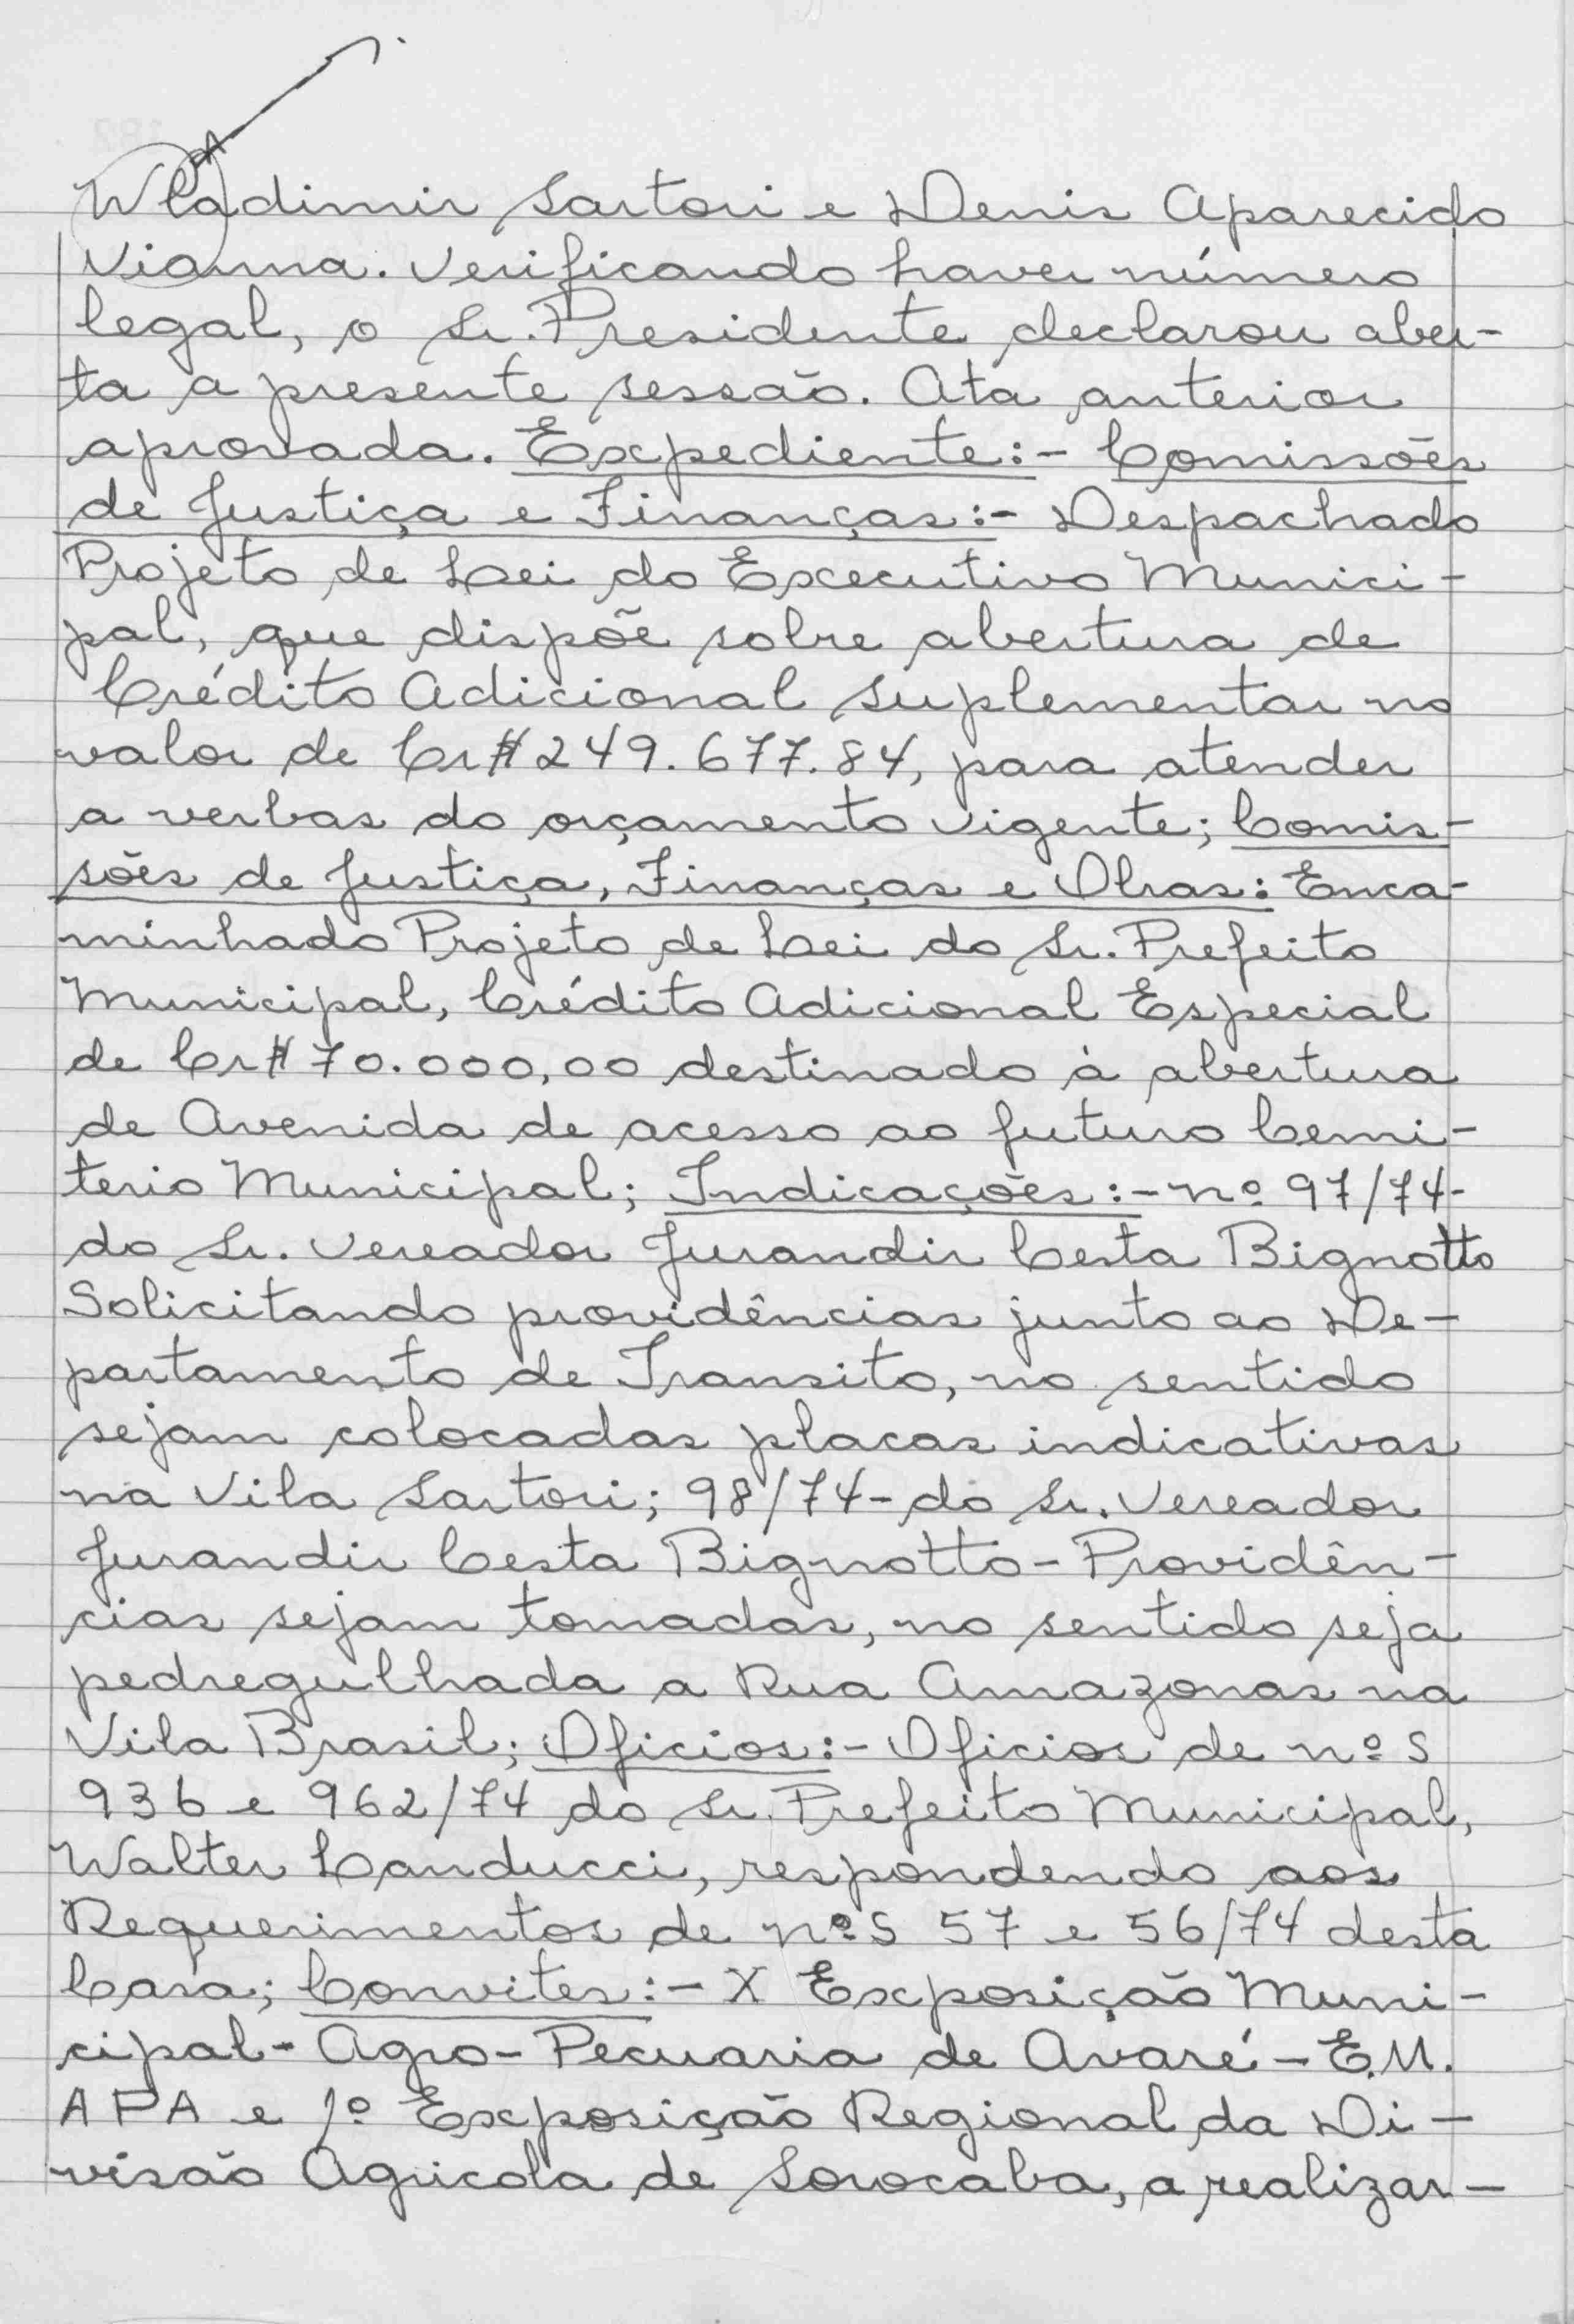 Wladimir Sartori e Denis Aparecido
Vianna. Verificando haver número
legal, o Sr. Presidente declarou aber-
ta a presente sessão. Ata anterior
aprovada. Expediente:- Comissões
de Justiça e Finanças:- Despachado
Projeto de Lei do Executivo Munici-
pal, que dispõe sobre abertura de
Crédito Adicional Suplementar no
valor de Cr$ 249.677.84, para atender
a verbas do orçamento vigente; Comis-
sões de Justiça, Finanças e Obras: Enca-
minhado Projeto de Lei do Sr. Prefeito
Municipal, Crédito Adicional Especial
de Cr$ 70.000,00 destinado à abertura
de Avenida de acesso ao futuro Cemi-
terio Municipal; Indicações:- nº 97/74-
do Sr. Vereador Jurandir Cesta Bignotto
Solicitando providências junto ao De-
partamento de Transito, no sentido
sejam colocadas placas indicativas
na Vila Sartori; 98/74- do Sr. Vereador
Jurandir Cesta Bignotto - Providên-
cias sejam tomadas, no sentido seja
pedregulhada a Rua Amazonas na
Vila Brasil; Oficios:- Oficios de nºs
936 e 962/74 do Sr. Prefeito Municipal,
Walter Canducci, respondendo aos
Requerimentos de nºs 57 e 56/74 desta
Casa; Convites:- X Exposição Muni-
cipal- Agro- Pecuaria de Avaré - E.M.
APA e 1º Exposição Regional da Di-
visão Agricola de Sorocaba, a realizar-